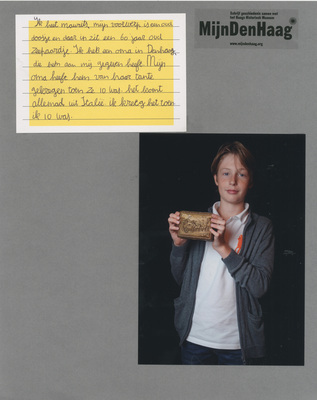 Schrijf geschiedenis samen met
het Haags Historisch Museum
MijnDenHaag
www.mijndenhaag.org
Ik heet maurits, mijn voorwerp is een oud
doosje en daar in zit een 60 jaar oud
zeepaardje. Ik heb een oma in Den haag,
die hem aan mij gegeven heeft. Mijn
oma heeft hem van haar tante
gekregen toen ze 10 was. het komt
allemaal uit Italië. ik kreeg het toen
ik 10 was.